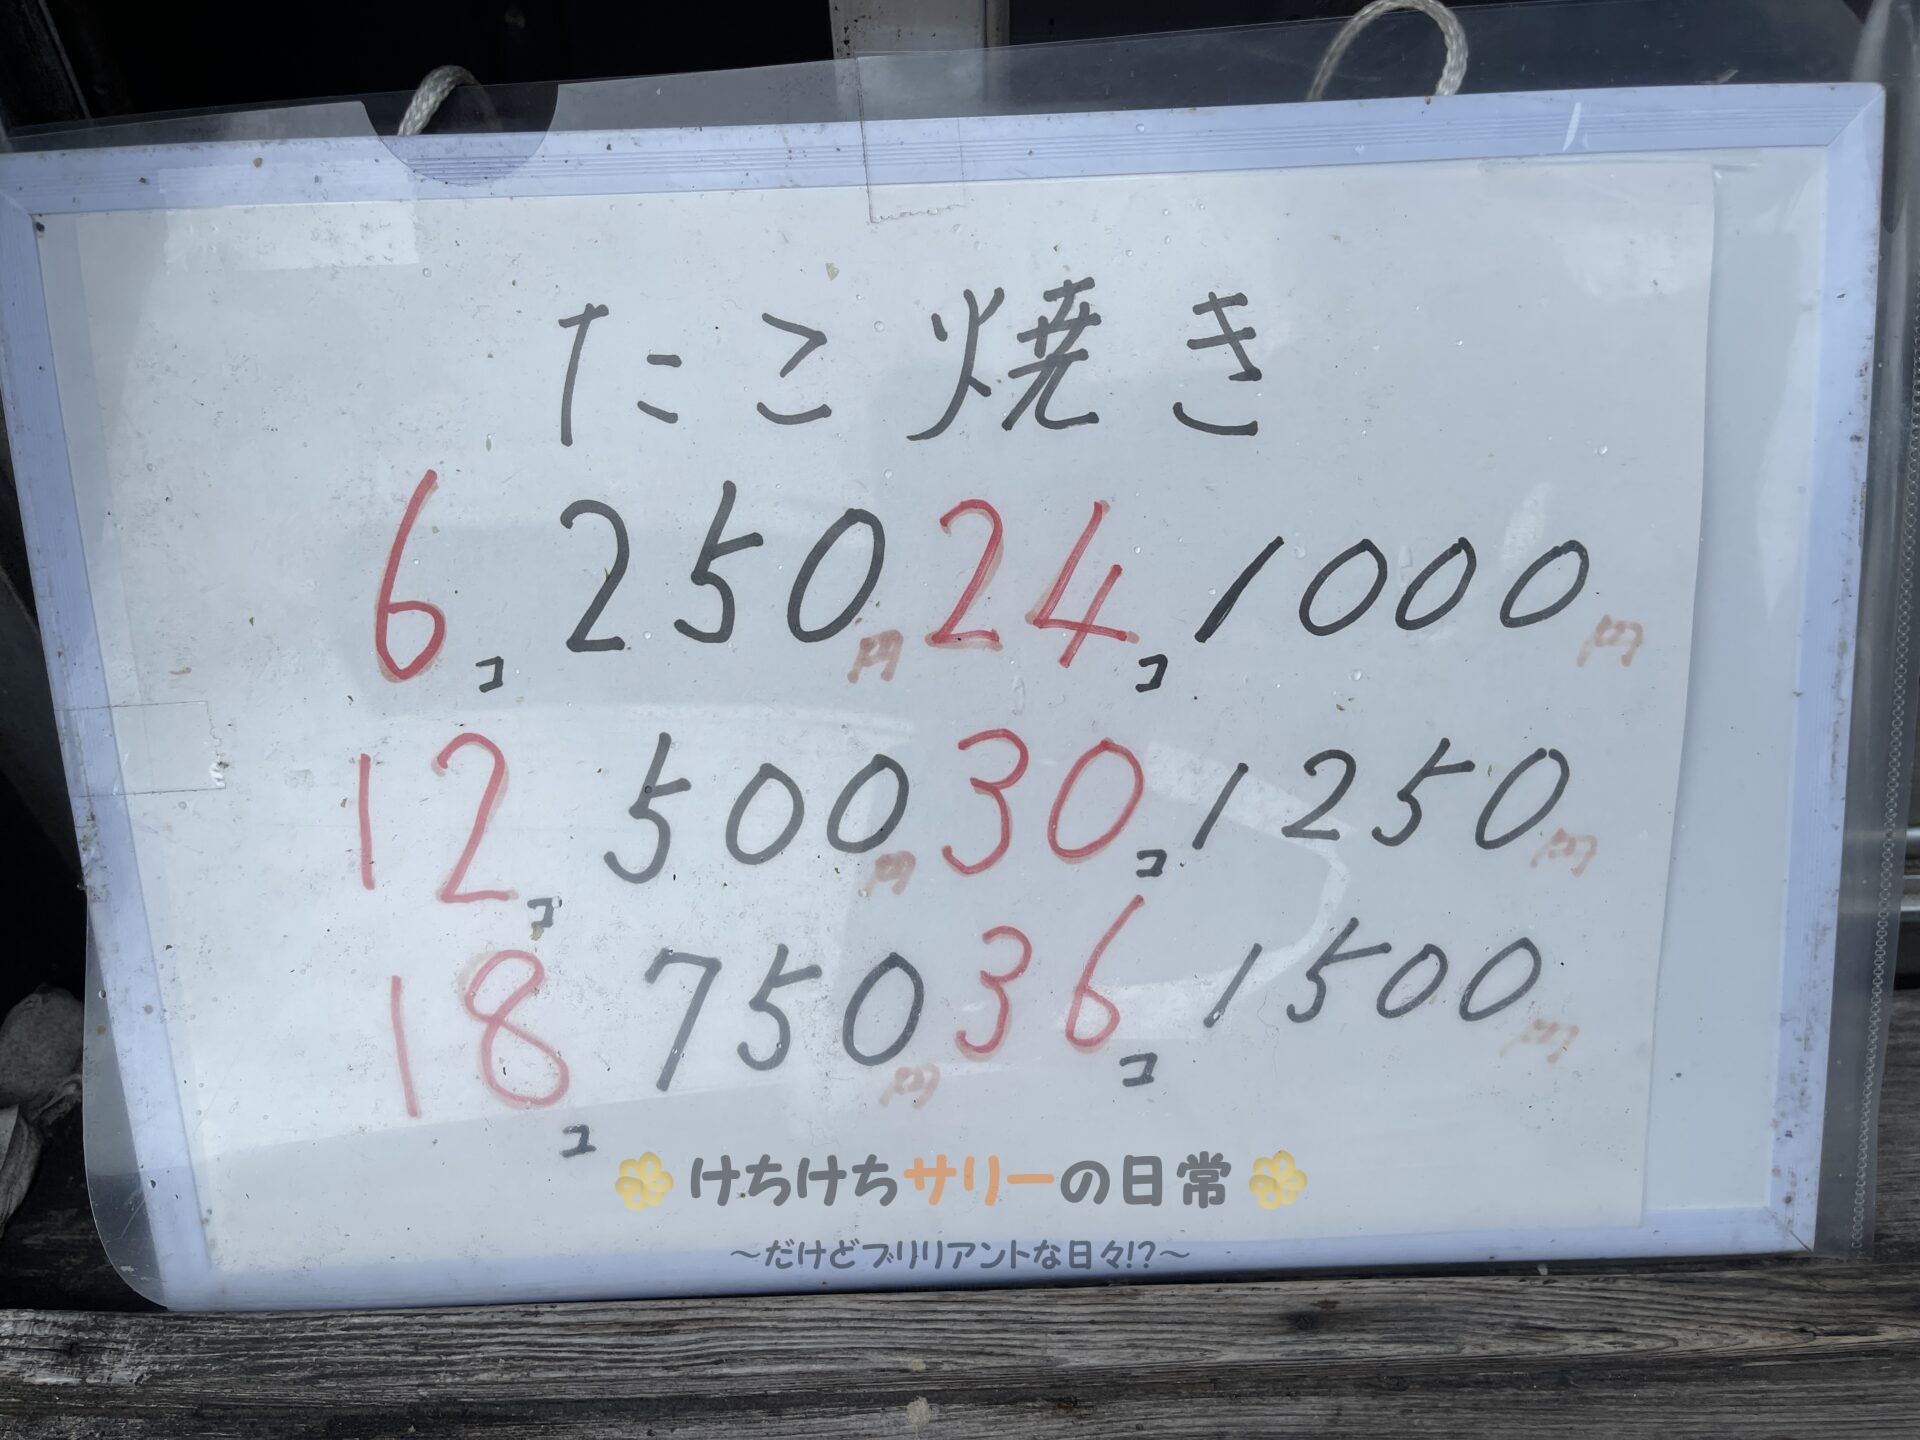 たこ焼き
6コ 250円 24コ 1000円
12コ 500円 30コ 1250円
18コ 750円 36コ 1500円
けちけちサリーの日常
～だけどブリリアントな日々!?～